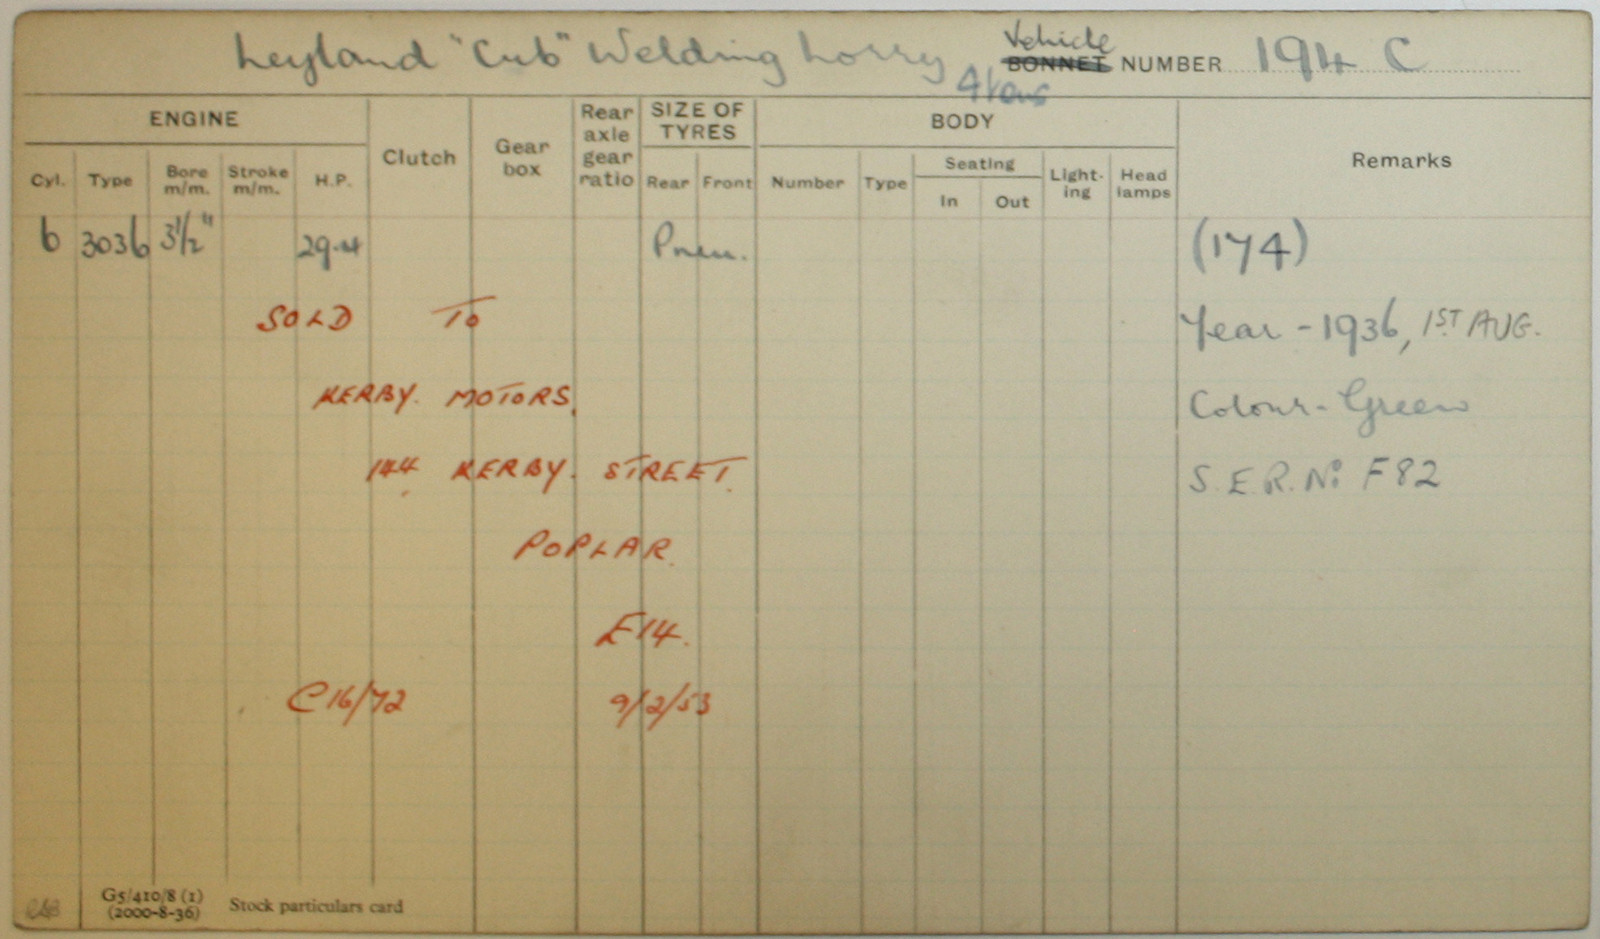 Leyland "Cub" Welding Lorry Vehicle BONNET NUMBER 194 C
4 tons
ENGINE Clutch Gear box Rear axle gear ratio SIZE OF TYRES BODY Remarks
Cyl. Type Bore m/m. Stroke m/m. H.P. Rear Front Number Type Seating In Out Light-ing Head lamps
6 3036 3½" 29.4 Pneu. (174)
SOLD To Year - 1936, 1ST AUG.
KERBY. MOTORS. Colour - Green
144 KERBY. STREET. S.E.R. No: F82
POPLAR.
E14.
C16/72 9/2/53
G5/410/8 (1)
(2000-8-36) Stock particulars card